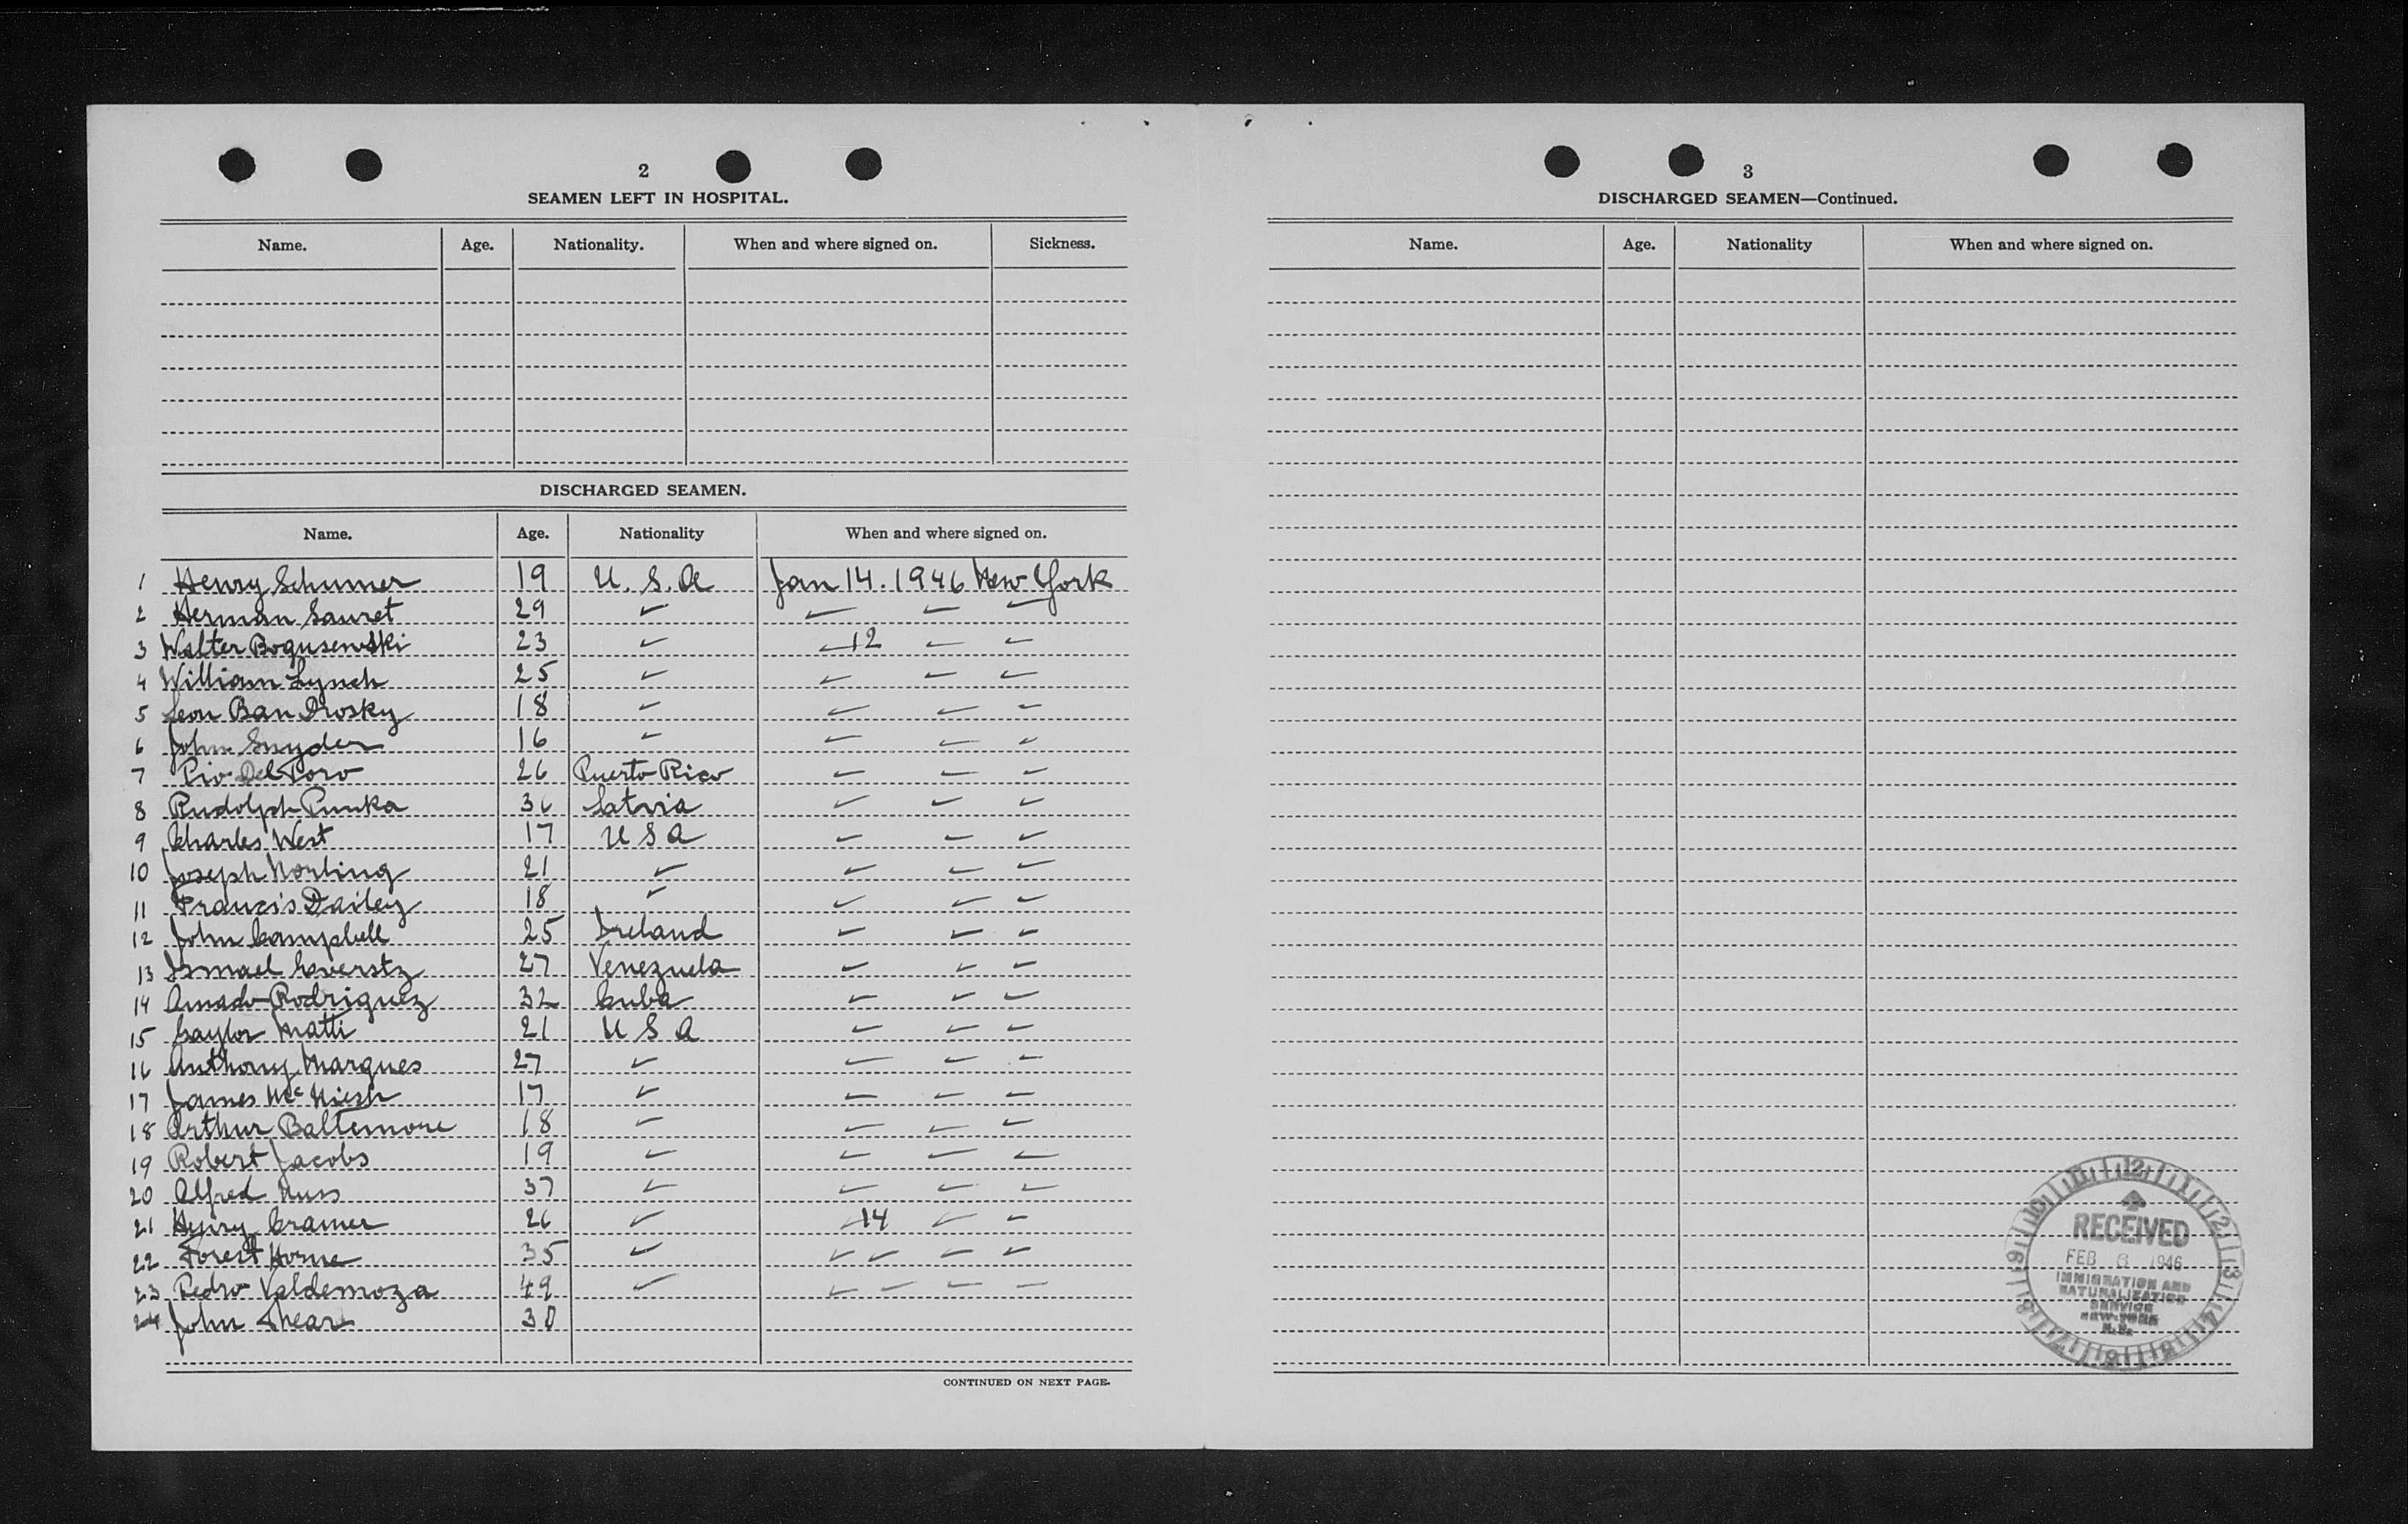 2
SEAMEN LEFT IN HOSPITAL.
Name. Age. Nationality. When and where signed on. Sickness.
DISCHARGED SEAMEN.
Name. Age. Nationality When and where signed on.
1 Henry Schumer 19 U.S.A Jan 14. 1946 New York
2 Herman Sauret 29 ✓ ✓ ✓ ✓
3 Walter Bogusewski 23 ✓ ✓ 12 ✓ ✓
4 William Lynch 25 ✓ ✓ ✓ ✓
5 Leon Ban Drosky 18 ✓ ✓ ✓ ✓
6 John Snyder 16 ✓ ✓ ✓ ✓
7 Pio Del Toro 26 Puerto Rico ✓ ✓ ✓
8 Rudolph Punka 36 Latvia ✓ ✓ ✓
9 Charles West 17 U S A ✓ ✓ ✓
10 Joseph Norling 21 ✓ ✓ ✓ ✓
11 Francis Dailey 18 ✓ ✓ ✓ ✓
12 John Campbell 25 Ireland ✓ ✓ ✓
13 Ismael Everstz 27 Venezuela ✓ ✓ ✓
14 Amado Rodriguez 32 Cuba ✓ ✓ ✓
15 Gaylor Matti 21 U S A ✓ ✓ ✓
16 Anthony Marques 27 ✓ ✓ ✓ ✓
17 James McNiesh 17 ✓ ✓ ✓ ✓
18 Arthur Baltemore 18 ✓ ✓ ✓ ✓
19 Robert Jacobs 19 ✓ ✓ ✓ ✓
20 Alfred Nuss 37 ✓ ✓ ✓ ✓
21 Henry Cramer 26 ✓ 14 ✓ ✓
22 Forest Horne 35 ✓ ✓ ✓ ✓ ✓
23 Pedro Valdemoza 49 ✓ ✓ ✓ ✓ ✓
24 John Shear 30
CONTINUED ON NEXT PAGE.
3
DISCHARGED SEAMEN—Continued.
Name. Age. Nationality When and where signed on.
RECEIVED
FEB 6 1946
IMMIGRATION AND
NATURALIZATION
SERVICE
NEW YORK
N.Y.